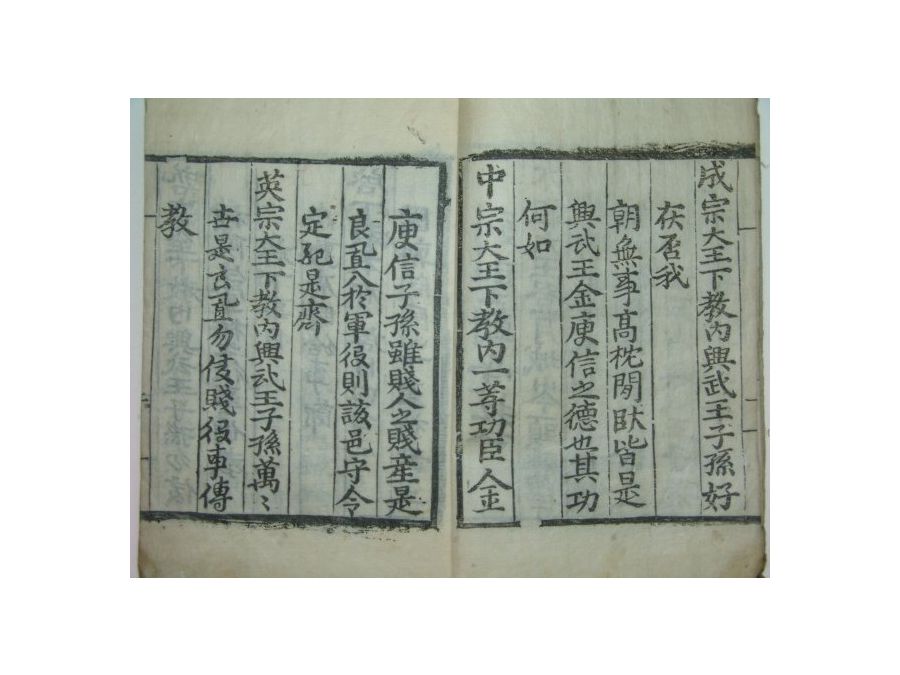 成宗大王下教內興武王子孫好
在否我
朝無事高枕閒臥皆是
興武王金庾信之德也其功
何如
中宗大王下教內一等功臣金
庾信子孫雖賤人之賤産是
良置入於軍役則該邑守令
定配是齊
英宗大王下教內興武王子孫萬〻
世是良置勿侵賤役事傳
教